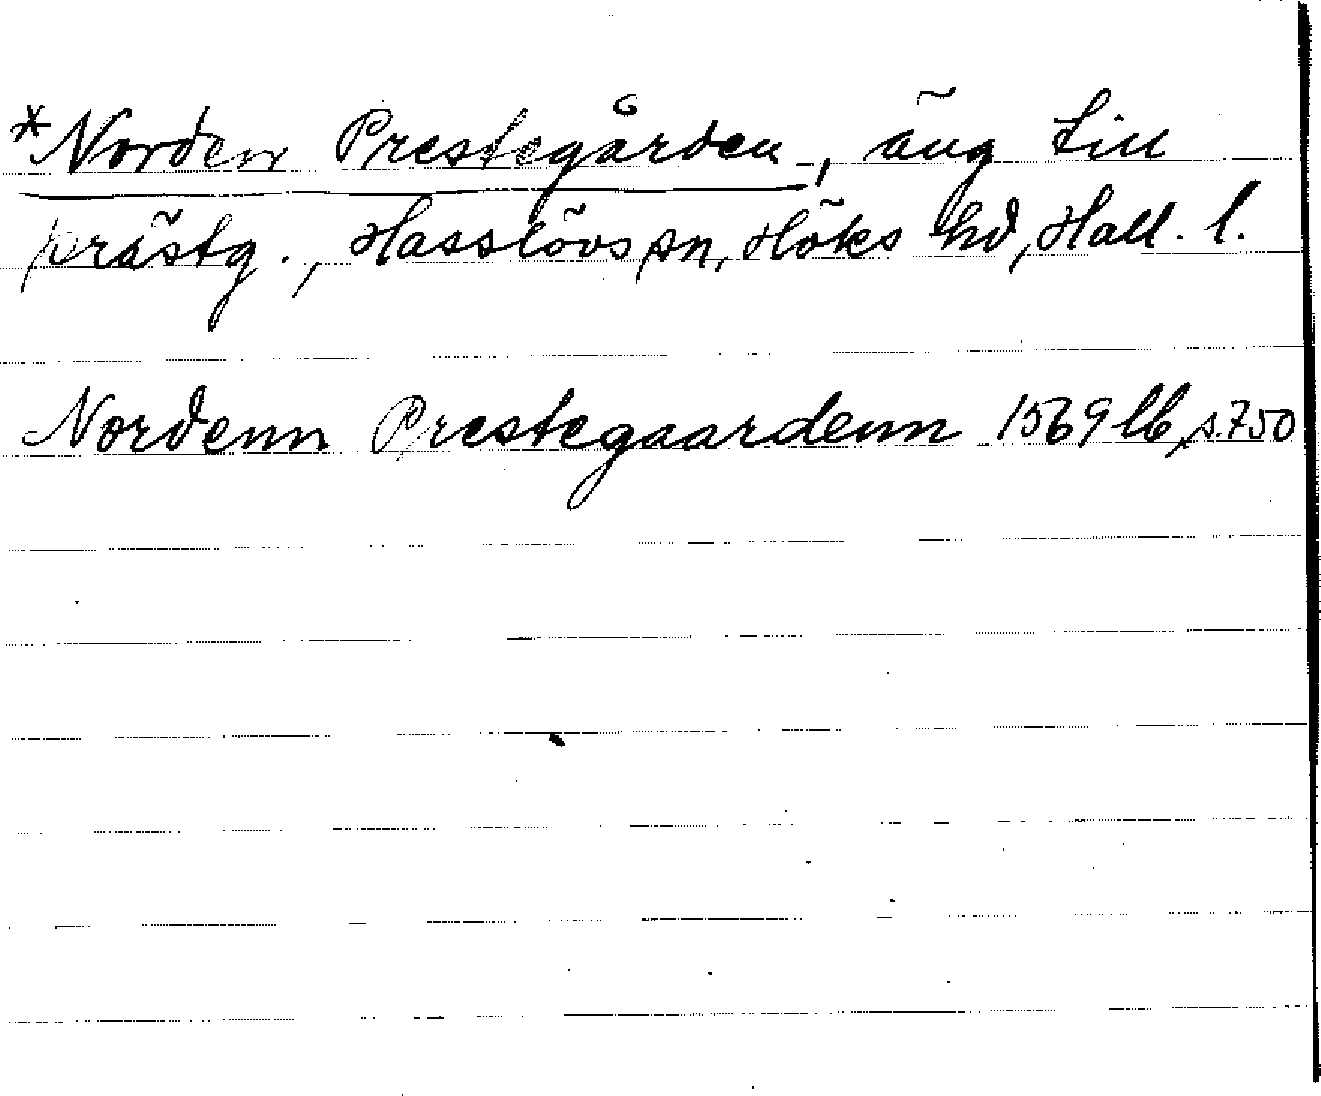 *Norden Prestegården, äng till
prästg., Hasslövs sn, Höks hd, Hall. l.
Nordenn Prestegaardenn 1569 lb, s. 750